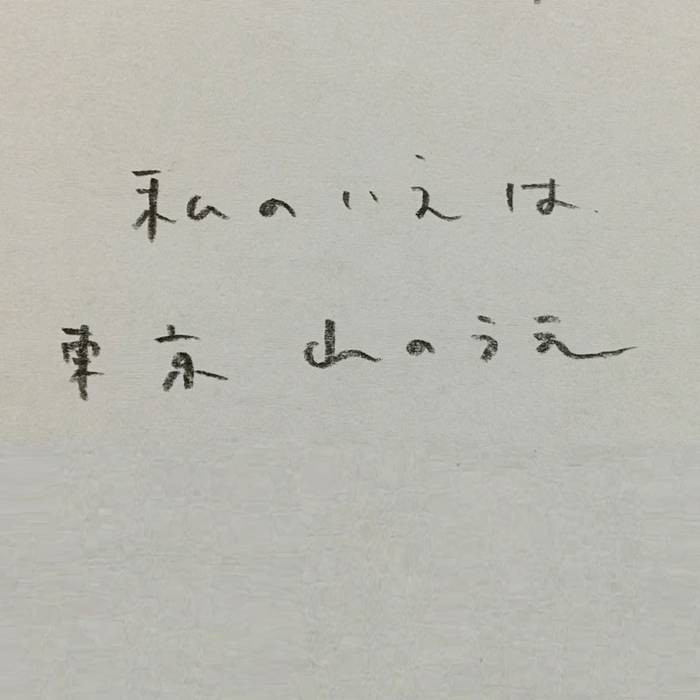 私のいえは
東京 山のうえ